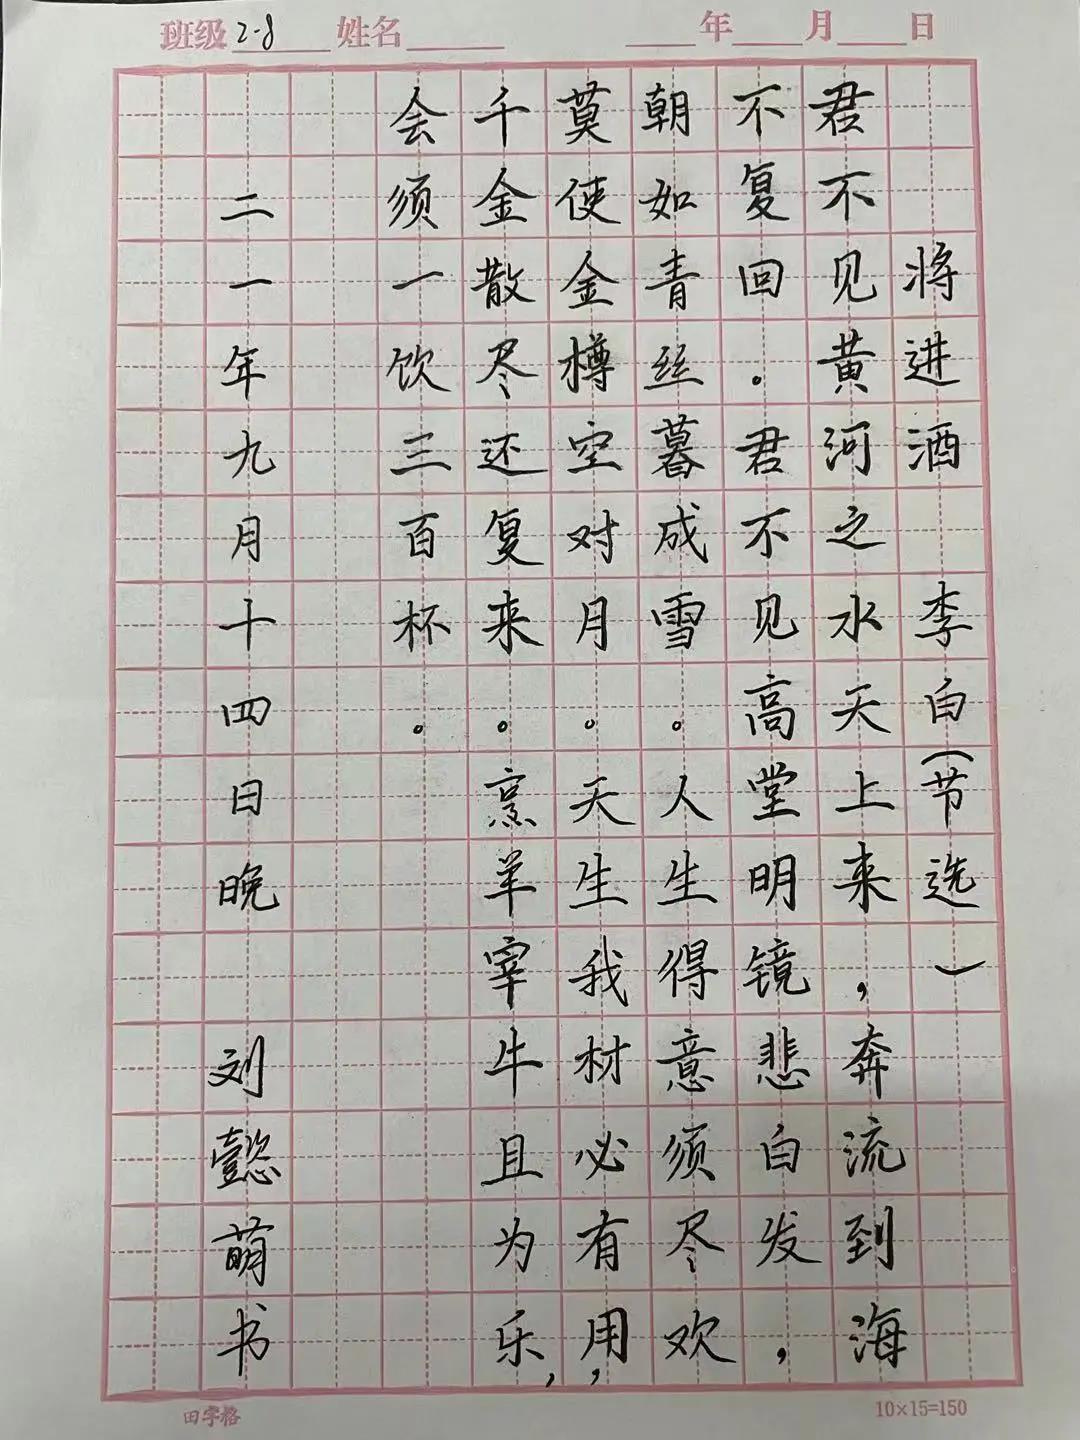 班级 2-8 姓名 年 月 日
将进酒 李白(节选)
君不见黄河之水天上来,奔流到海
不复回。君不见高堂明镜悲白发,
朝如青丝暮成雪。人生得意须尽欢
莫使金樽空对月。天生我材必有用,
千金散尽还复来。烹羊宰牛且为乐,
会须一饮三百杯。
二一年九月十四日晚 刘懿萌书
田字格 10×15=150